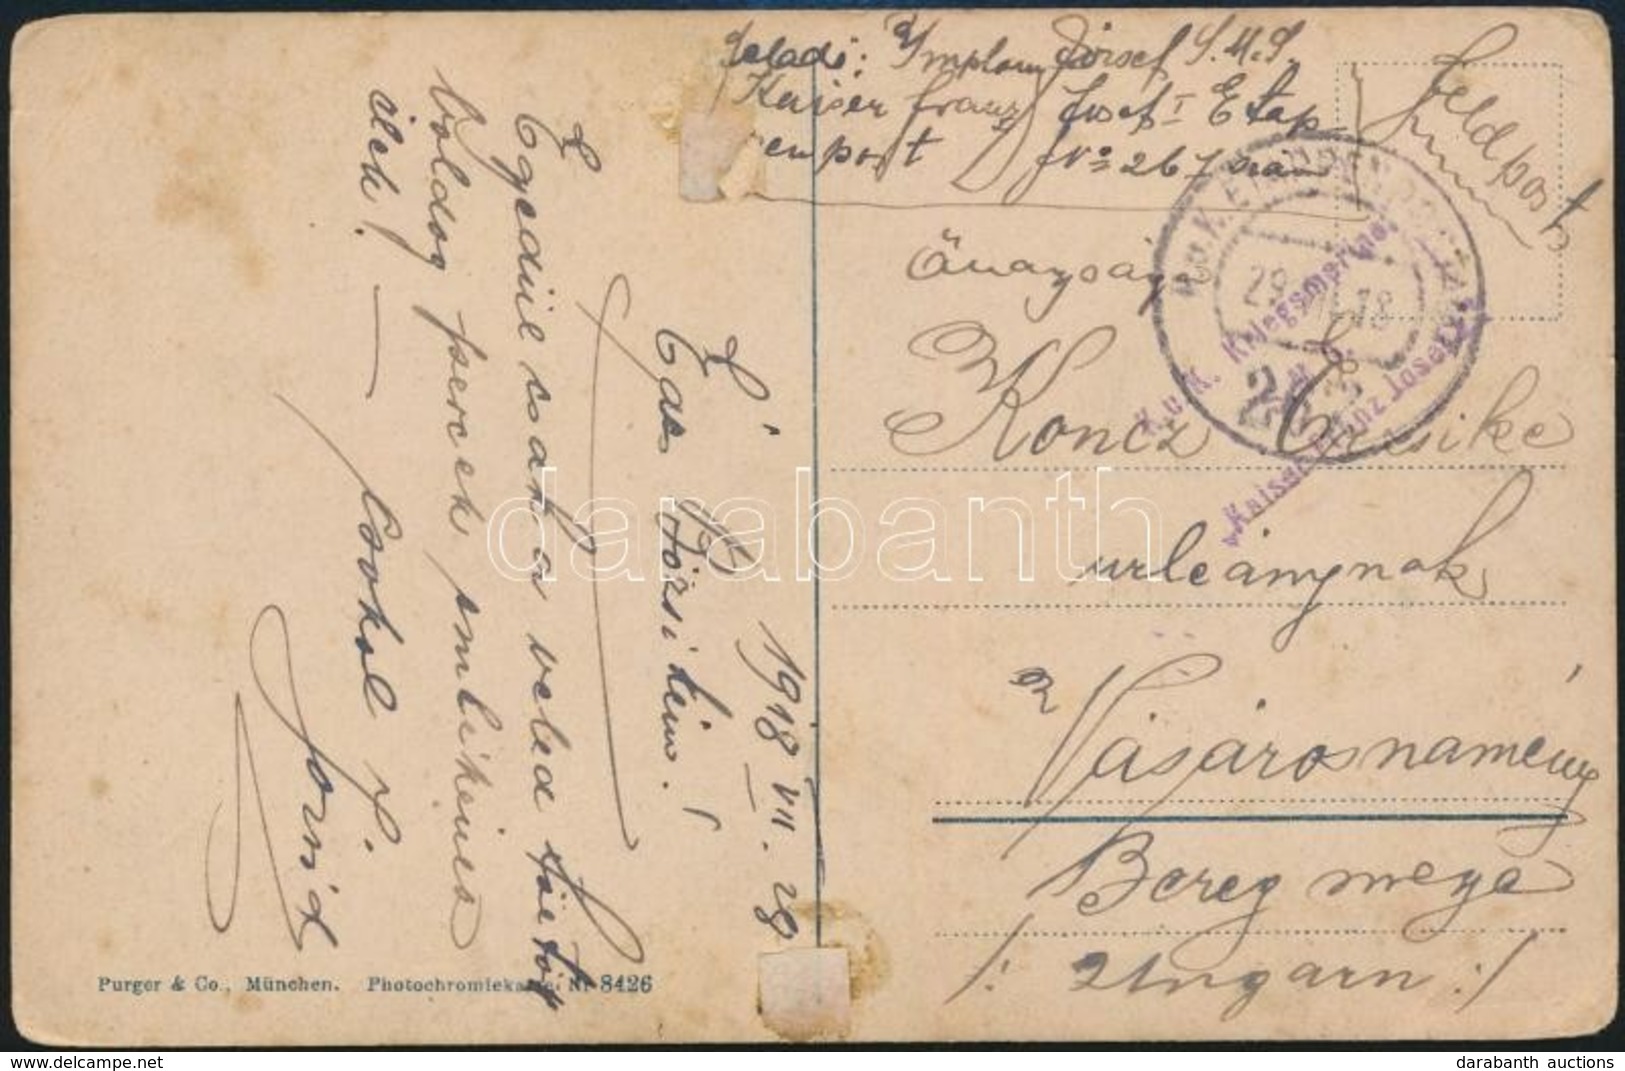 Feladó: József S.M.S.
Kaiser Franz Josef I Etap-
penpost No 267 szám
Feldpost
Őnagysága
Koncz Erzsike
urleánynak
Vásárosnamény
Bereg megye
/: Ungarn :/
K.u.K. ETAPPENPOSTAMT
29 VII 18
267
K. u. K. Kriegsmarine.
S. M. S.
Kaiser Franz Josef I.
1918 VII. 29
Édes Bözsikém!
Egyedül csak a veled töltött
boldog percek emlékeinek
élek! —
— Csókol
Purger & Co., München. Photochromiekarte Nr 8426
darabanth
darabanth auctions